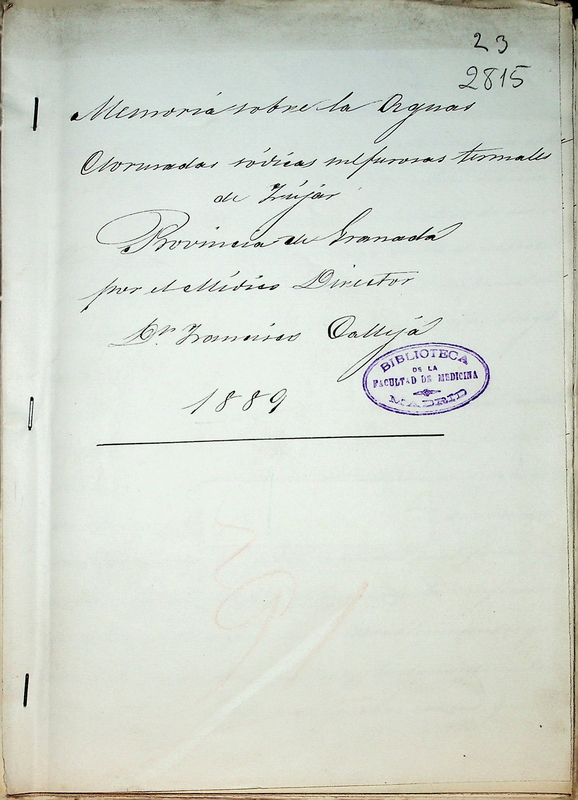 23
2815
Memoria sobre la Aguas
Cloruradas sódicas sulfurosas termales
de Zújar
Provincia de Granada
por el Médico Director
Dr. Francisco Calleja
1889
BIBLIOTECA
DE LA
FACULTAD DE MEDICINA
MADRID